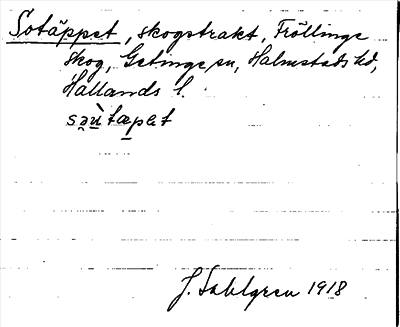 Sotäppet, skogstrakt, Fröllinge
skog, Getinge sn, Halmstads hd,
Hallands l.
J. Sahlgren 1918